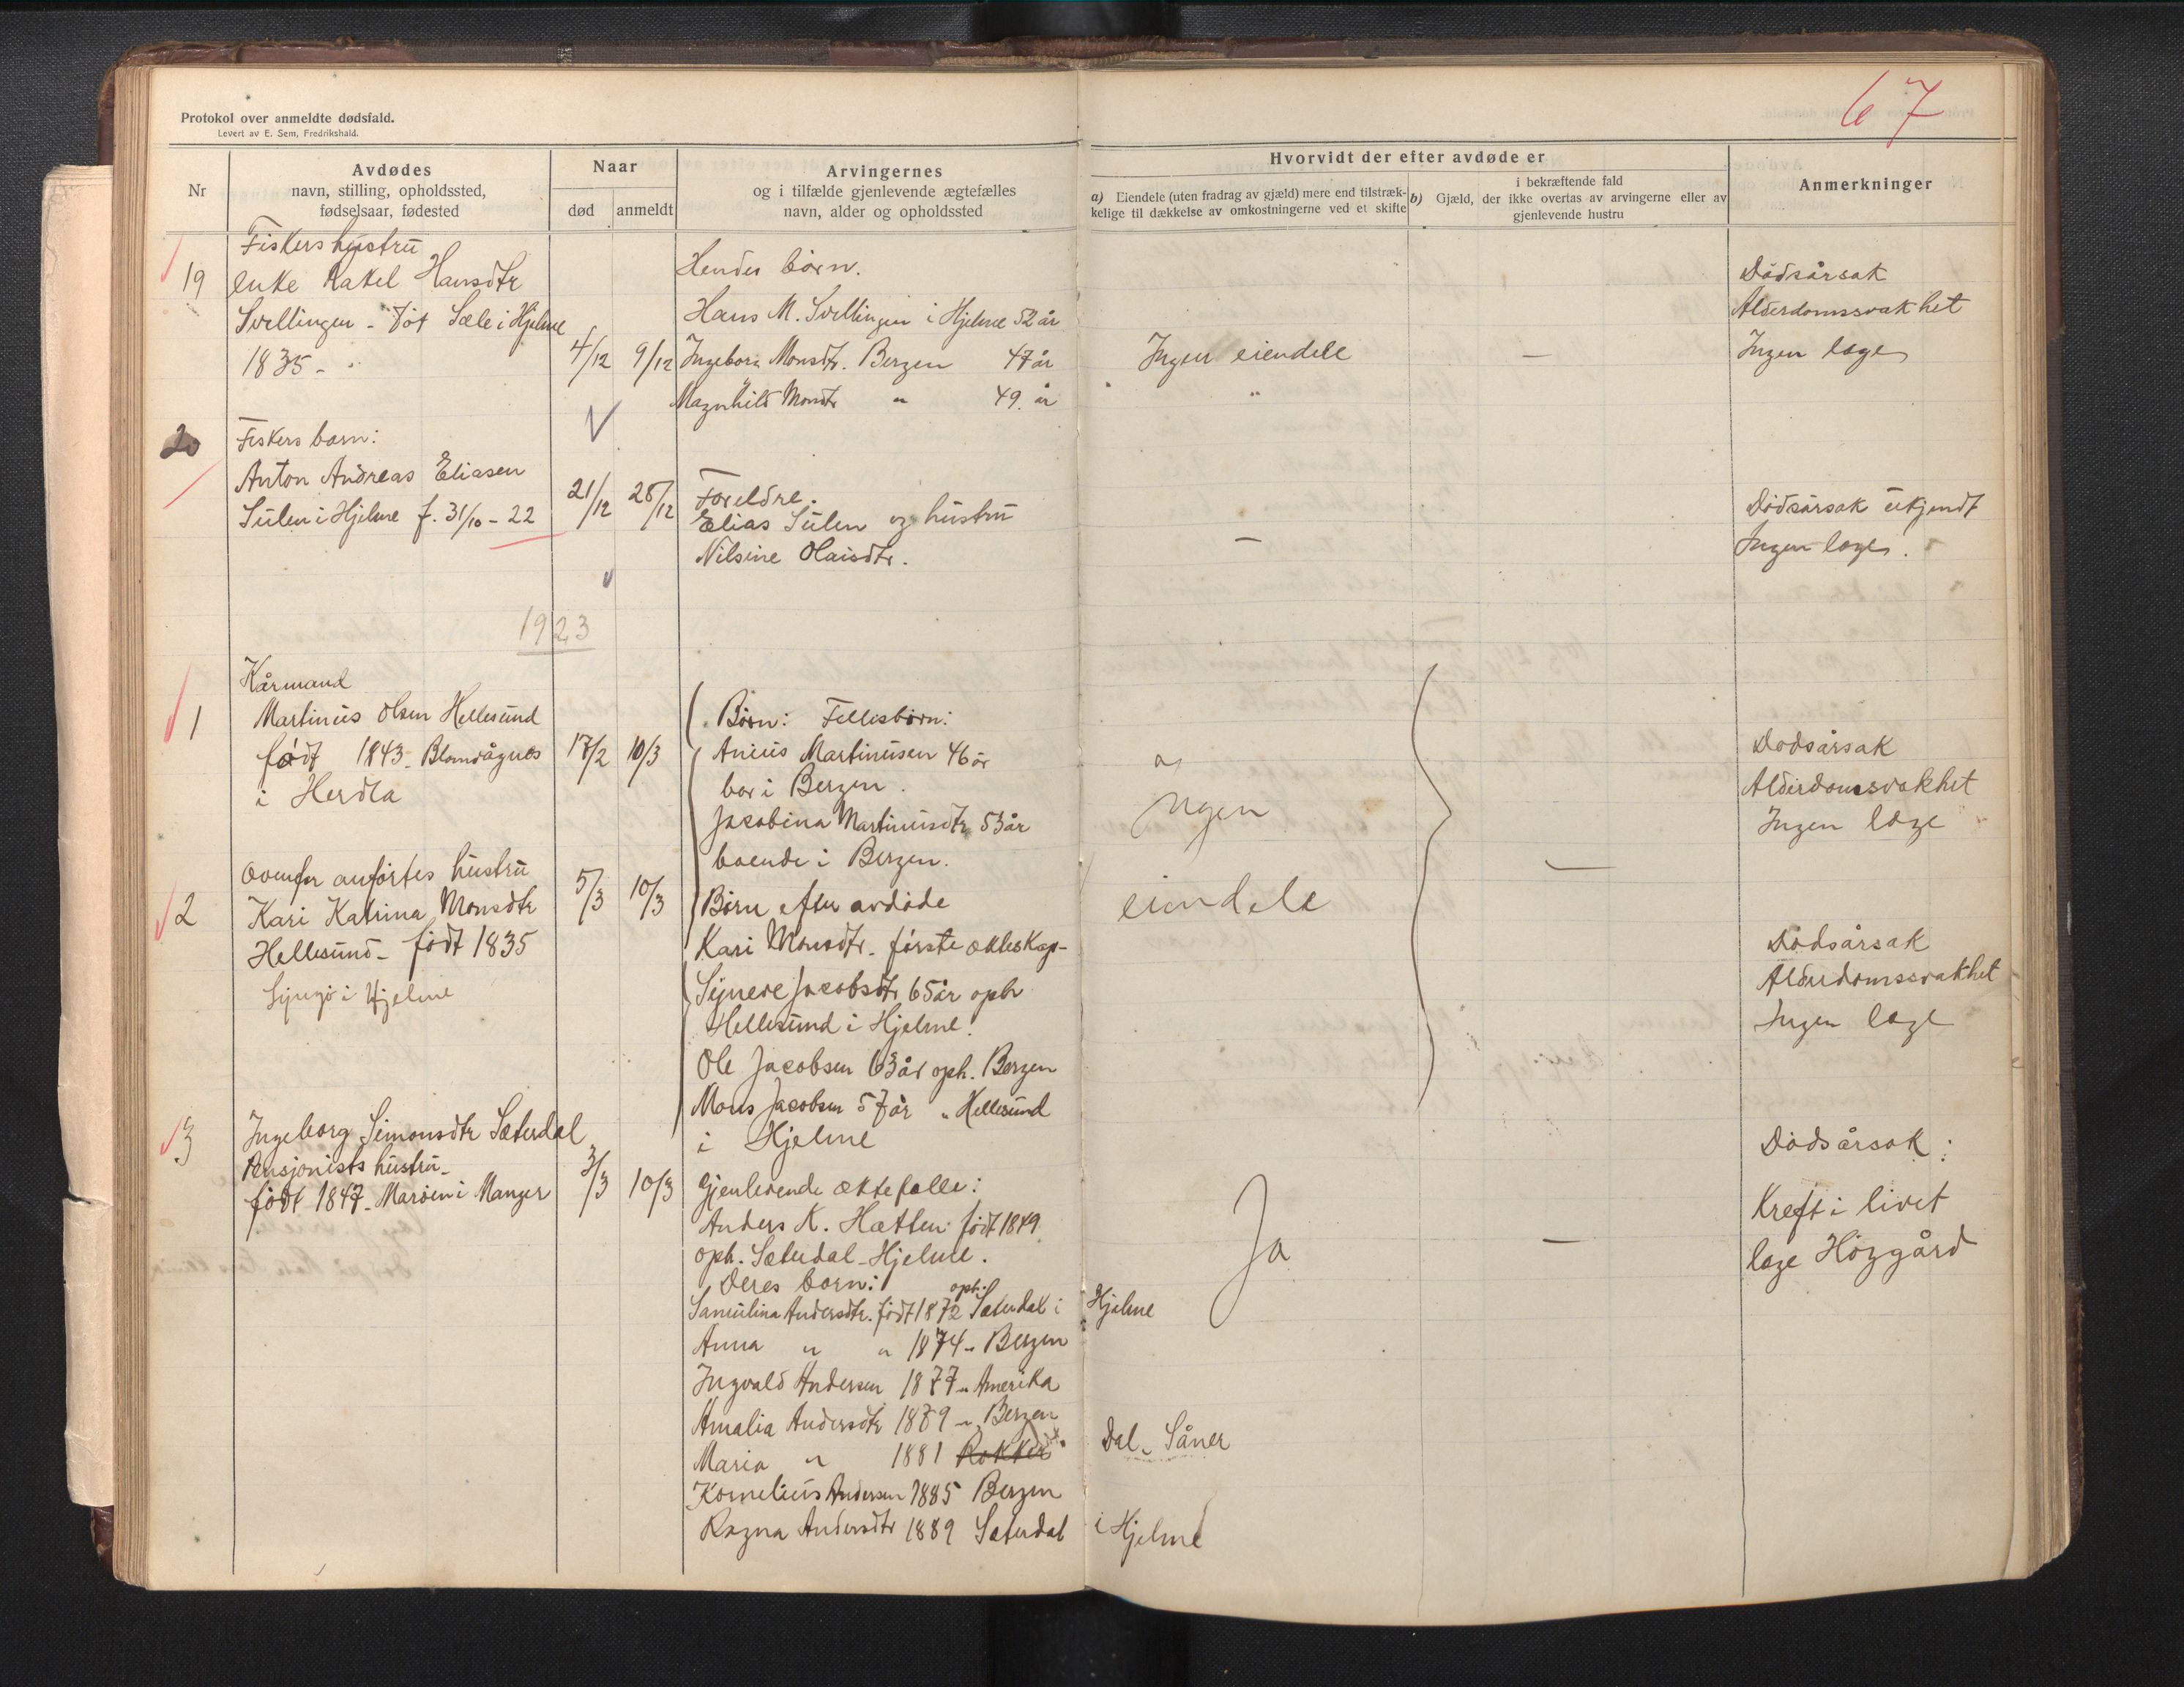 67
Protokol over anmeldte dødsfald.
Levert av E. Sem, Fredrikshald.
Nr
Avdødes
navn, stilling, opholdssted,
fødselsaar, fødested
Naar
død
anmeldt
Arvingernes
og i tilfælde gjenlevende ægtefælles
navn, alder og opholdssted
Hvorvidt der efter avdøde er
a) Eiendele (uten fradrag av gjæld) mere end tilstræk-
kelige til dækkelse av omkostningerne ved et skifte
b) Gjæld,
i bekræftende fald
der ikke overtas av arvingerne eller av
gjenlevende hustru
Anmerkninger
19
Fiskers hustru
enke Rakel Hansdtr
Svellingen - føt Sæle i Hjelme
1835 -
4/12
9/12
Hendes børn.
Hans M. Svellingen i Hjelme 52 år
Ingeborg Monsdtr. Bergen 47 år
Magnhild Monsdtr " 49. år
Ingen eiendele
—
Dødsårsak
Alderdomssvakhet
Ingen læge
20
Fiskers barn:
Anton Andreas Eliasen
Sulen i Hjelme f. 31/10 - 22
21/12
28/12
Foreldre.
Elias Sulen og hustru
Nilsine Olaisdtr.
—
Dødsårsak ukjendt
Ingen læge.
1923
1
Kårmand
Martinus Olsen Hellesund
født 1843 - Blomvågnes
i Herdla
17/2
10/3
Børn: Fellisbørn:
Anius Martinusen 46 år
bor i Bergen.
Jacobina Martinusdtr 53 år
boende i Bergen.
Ingen
eiendele
—
Dødsårsak
Alderdomssvakhet
Ingen læge
2
Ovenfor anførtes hustru
Kari Katrina Monsdtr
Hellesund - født 1835
Lyngø i Hjelme
5/3
10/3
Børn efter avdøde
Kari Monsdtr. første ækteskap-
Synneve Jacobsdtr 65 år oph
Hellesund i Hjelme.
Ole Jacobsen 63 år oph. Bergen
Mons Jacobsen 57 år " Hellesund
i Hjelme
Dødsårsak
Alderdomssvakhet
Ingen læge
3
Ingeborg Simonsdtr Sæterdal
Pensjonists hustru -
født 1847 - Marøen i Manger
3/3
10/3
Gjenlevende æktefælle:
Anders K. Hatten født 1849
oph. Sæterdal - Hjelme.
Deres børn:
Samulina Andersdtr. født 1872 oph. Sæterdal i Hjelme
Anna " " 1874 - Bergen
Ingvald Andersen 1877 " Amerika
Amalia Andersdtr 1879 " Bergen
Maria " 1881 Rokker Dal - Såner
Kornelius Andersen 1885 Bergen
Ragna Andersdtr 1889 Sæterdal i Hjelme
Ja
—
Dødsårsak:
Kreft i livet
læge Høzgård